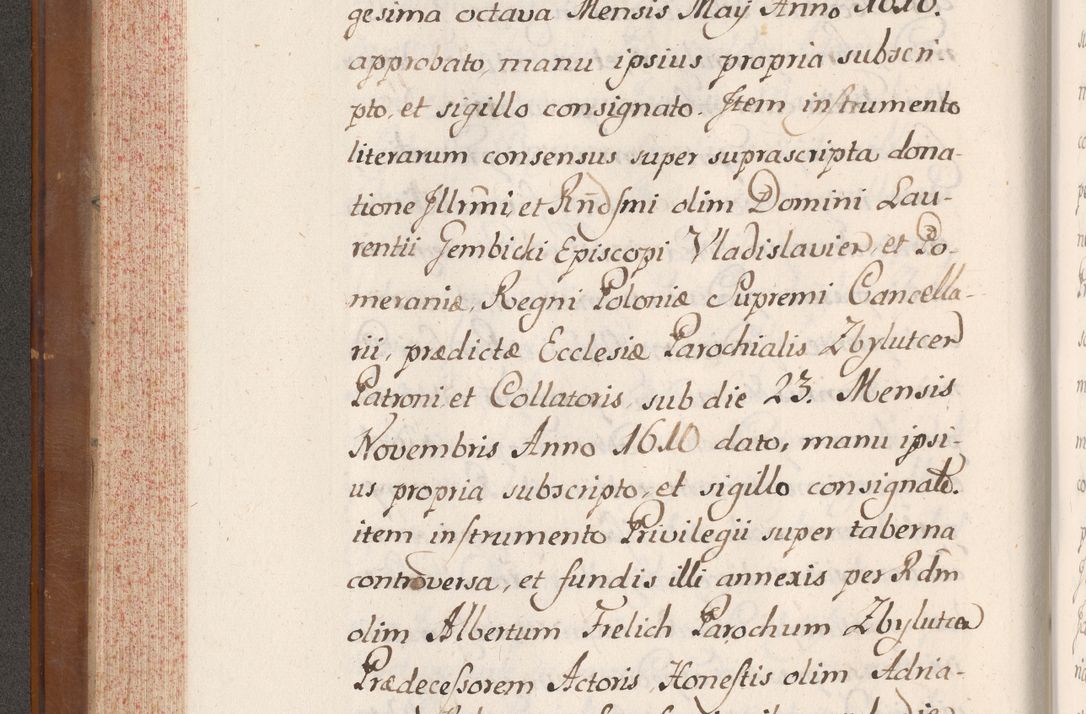 gesima octava Mensis Maÿ Anno 1610.
approbato, manu ipsius propria subscri-
pto, et sigillo consignato. Jtem inſtrumento
literarum consensus super suprascripta dona-
tione Jllrm̄i, et Rn̄dſmi olim Domini Lau-
rentii Gembicki Episcopi Vladislavien, et Po-
meraniæ, Regni Poloniæ Supremi Cancella-
rii, prædictæ Ecclesiæ Parochialis Zbylutcen
Patroni et Collatoris, sub die 23. Mensis
Novembris Anno 1610 dato, manu ipsi-
us propria subscripto, et sigillo consignato.
item inſtrumento Privilegii super taberna
controversa, et fundis illi annexis per Rdm̄
olim Albertum Frelich Parochum Zbylutcen
Prædeceſsorem Actoris, Honeſtis olim Adria-